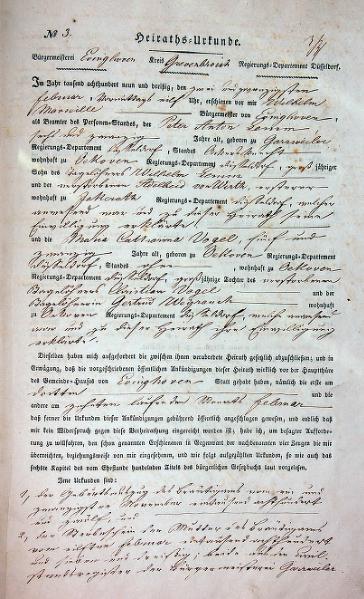 № 3. Heiraths-Urkunde. 3/
Bürgermeisterei Evinghoven Kreis Grevenbroich Regierungs-Departement Düsseldorf.
Im Jahr tausend achthundert neun und dreißig, den zwei und zwanzigsten
Februar, Vormittags eilf Uhr, erschienen vor mir Wilhelm
Bürgermeister von Evinghoven,
als Beamter des Personen-Standes, der Peter Anton
sechs und zwanzig Jahre alt, geboren zu Garzweiler
Regierungs-Departement Düsseldorf, Standes
wohnhaft zu Oekoven Regierungs-Departement Düsseldorf, groß jähriger
Sohn des Wilhelm
und der verstorbenen ersterer
wohnhaft zu Jackerath Regierungs-Departement Düsseldorf, welcher
anwesend war und zu dieser Heirath seine
Einwilligung erklärte;
und die Maria Catharina Vogel, fünf und
zwanzig Jahre alt, geboren zu Oekoven Regierungs-Departement
Düsseldorf, Standes ohne wohnhaft zu Oekoven
Regierungs-Departement Düsseldorf, großjährige Tochter des verstorbenen
Vogel und der
Gertrud wohnhaft
zu Oekoven Regierungs-Departement Düsseldorf, welche anwesend
war und zu dieser Heirath ihre Einwilligung
erklärte.
Dieselben haben mich aufgefordert die zwischen ihnen verabredete Heirath gesetzlich abzuschließen; und in
Erwägung, daß die vorgeschriebenen öffentlichen Ankündigungen dieser Heirath wirklich vor der Hauptthüre
des Gemeinde-Hauses von Evinghoven Statt gehabt haben, nämlich die erste am
dritten und die
andere am zehnten laufenden Monats Februar
daß ferner die Urkunden dieser Ankündigungen gebührend öffentlich angeschlagen gewesen, und endlich daß
mir kein Widerspruch gegen diese Verheirathung eingereicht worden ist; habe ich, um besagter Aufforde-
rung zu willfahren, den schon genannten Erschienenen in Gegenwart der nachbenannten vier Zeugen die mir
überreichten, beziehungsweise von mir eingesehenen, und wie folgt aufgezählten Urkunden, so wie auch das
sechste Kapitel des vom Ehestande handelnden Titels des bürgerlichen Gesetzbuchs laut vorgelesen.
Jene Urkunden sind:
1, der Geburtsauszug des Bräutigams vom ein und
zwanzigsten November eintausend achthundert
und zwölf, und
2, der Sterbeschein der Mutter des Bräutigams
vom eilften Februar eintausend achthundert
und sieben und dreißig; beide aus dem Civil-
standsregister der Bürgermeisterei Garzweiler